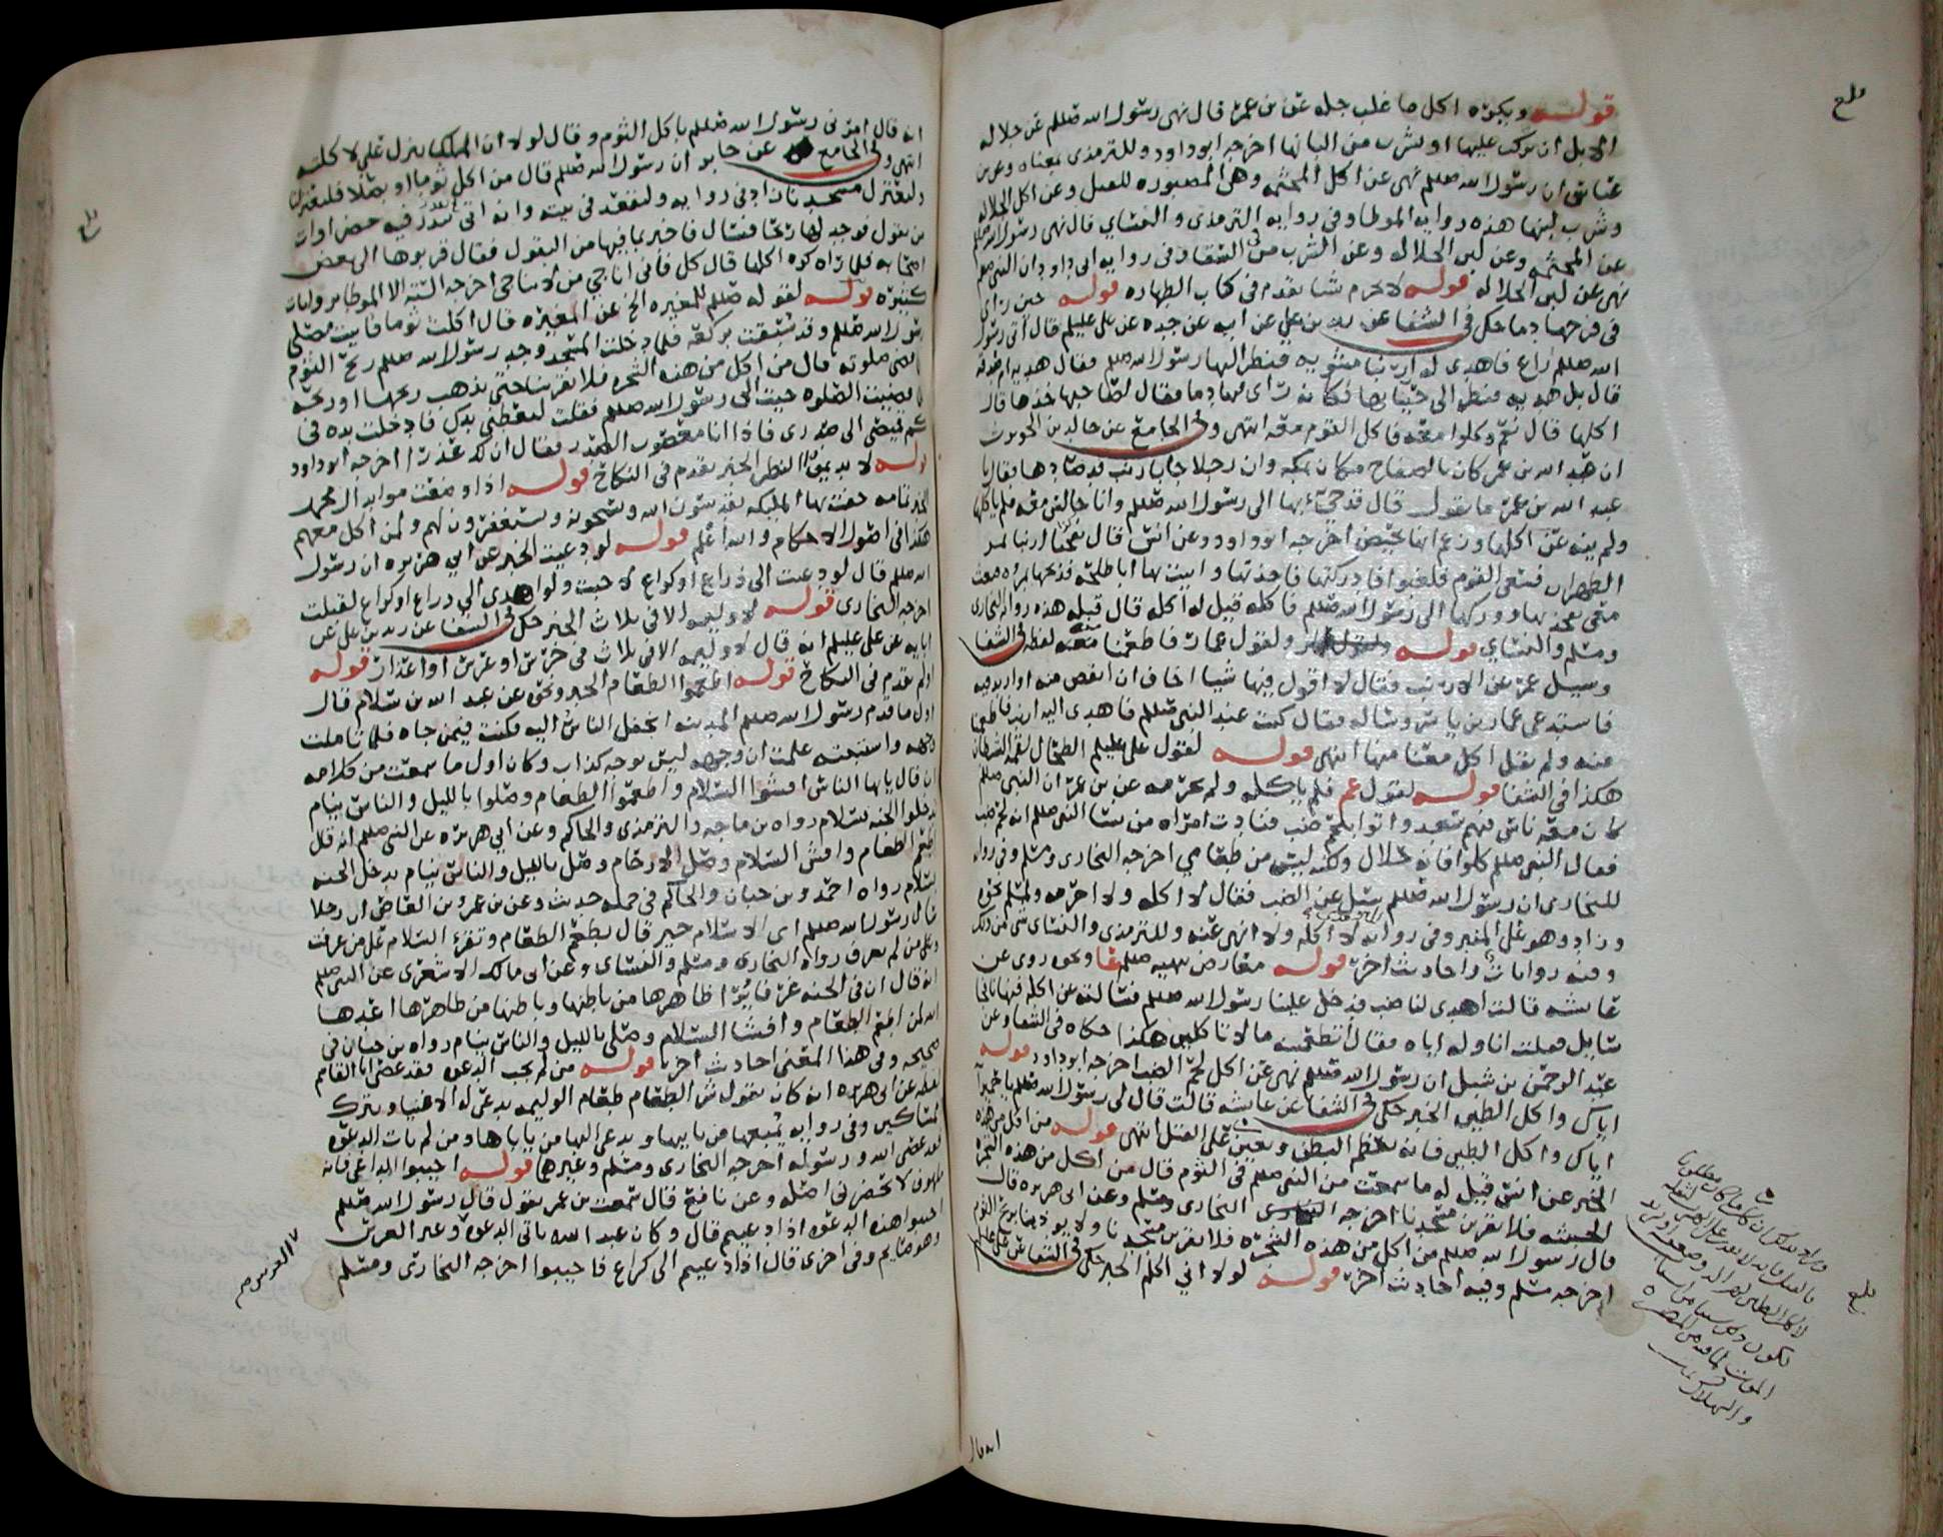 قوله ويكره اكل ما غلب جله عن بن عمر قال نهى رسول الله صللم عن جلاله
الابل ان يركب عليها او يشرب من البانها اخرجه ابو داود وللترمذي بمعناه وعن بن
عباس ان رسول الله صللم نهى عن اكل المجثمه وهي المصبوره للقتل وعن اكل الجلاله
وشرب لبنها هذه روايه الموطا وفي روايه الترمذي والنساي قال نهى رسول الله صللم
عن المجثمه وعن لبن الجلاله وعن الشرب من السقا وفي روايه ابي داود ان النبي صللم
نهى عن لبن الجلاله قوله لا يحرم شا تقدم في كتاب الطهاره قوله حين راى
في فرجها دما حكى في الشفا عن زيد بن علي عن ابيه عن جده عن علي عليلم قال اتى رسول
الله صللم راع فاهدى له ارنبا مشويه فنظر اليها رسول الله صللم فقال هديه ام صدقه
قال بل هديه فنظر الى حيائها فكانه راى فيها دما فقال لصاحبها خذها قال
اكلها قال نعم وكلوا معه فاكل القوم معه انتهى وفي الجامع عن خالد بن الحويرث
ان عبد الله بن عمر كان بالصفاح مكان بمكه وان رجلا جا بارنب قد صادها فقال يا
عبد الله بن عمر ما تقول قال قد جيء بها الى رسول الله صللم وانا جالس معه فلم ياكلها
ولم ينه عن اكلها وزعم انها تحيض اخرجه ابو داود وعن انس قال نفجنا ارنبا بمر
الظهران فسعى القوم فلغبوا فادركتها فاخذتها واتيت بها ابا طلحه فذبحها بمروه فبعث
معي بفخذيها ووركها الى رسول الله صللم فاكله قيل له اكله قال قبله هذه روايه البخاري
ومسلم والنساي قوله ولقول عمار فاطعمنا معه لفظه في الشفا
وسيل عمر عن الارنب فقال لا اقول فيها شيا اخاف ان انقص منه او ازيد فيه
فاستدعى عمار بن ياسر وساله فقال كنت عند النبي صللم فاهدى اليه ارنب فاطعمنا
منه ولم يقل اكل معنا منها انتهى قوله لقول علي عليلم الطحال لقمه الشيطان
هكذا في الشفا قوله لقول عمر فلم ياكله ولم يحرمه عن بن عمر ان النبي صللم
كان معه ناس فيهم سعد واتوا بلحم ضب فنادت امراه من نسا النبي صللم انه لحم ضب
فقال النبي صللم كلوا فانه حلال ولكنه ليس من طعامي اخرجه البخاري ومسلم وفي روايه
للبخاري ان رسول الله صللم سيل عن الضب فقال لا اكله ولا احرمه ولمسلم نحوه
وزاد وهو على المنبر وفي روايه لا اكله ولا انهى عنه وللترمذي والنساي نحو من ذلك
وفيه روايات واحاديث اخر قوله معارض بنهيه صللم عا ونحوه روي عن
عايشه قالت اهدي لنا ضب فدخل علينا رسول الله صللم فسالته عن اكله فنهانا فجا
سايل فقلت اناوله اياه فقال اتطعمينه ما لا تاكلين هكذا حكاه في الشفا وعن
عبد الرحمن بن شبل ان رسول الله صللم نهى عن اكل لحم الضب اخرجه ابو داود قوله
اياك واكل الطين الخبر حكى في الشفا عن عايشه قالت قال لي رسول الله صللم يا حميرا
اياك واكل الطين فانه يعظم البطن ويعين على القتل انتهى قوله من اكل من هذه
الخبر عن انس قيل له ما سمعت من النبي صللم في الثوم قال من اكل من هذه الشجره
الخبيثه فلا يقربن مسجدنا اخرجه البخاري ومسلم وعن ابي هريره قال
قال رسول الله صللم من اكل من هذه الشجره فلا يقربن مسجدنا ولا يوذينا بريح الثوم
اخرجه مسلم وفيه احاديث اخر قوله لولا اني اكلم الخبر حكى في الشفا عن علي عليلم
انه قال
انه قال امرني رسول الله صللم باكل الثوم وقال لولا ان الملك ينزل علي لاكلته
انتهى وفي الجامع عن جابر ان رسول الله صللم قال من اكل ثوما او بصلا فليعتزلنا
وليعتزل مسجدنا زاد في روايه وليقعد في بيته وانه اتي ببدر فيه خضراوات
من بقول فوجد لها ريحا فسال فاخبر بما فيها من البقول فقال قربوها الى بعض
اصحابه فلما راه كره اكلها قال كل فاني اناجي من لا تناجي اخرجه السته الا الموطا بروايات
كثيره قوله لقوله صللم للمغيره الخ عن المغيره قال اكلت ثوما فاتيت مصلى
رسول الله صللم وقد سبقت بركعه فلما دخلت المسجد وجد رسول الله صللم ريح الثوم
فلما قضى صلوته قال من اكل من هذه الشجره فلا يقربنا حتى يذهب ريحها او ريحه
فلما قضيت الصلوه جيت الى رسول الله صللم فقلت لتعطني يدك فادخلت يده في
كم قميصي الى صدري فاذا انا معصوب الصدر فقال ان لك عذرا اخرجه ابو داود
قوله لا يديمن النظر الخبر تقدم في النكاح قوله اذا وضعت موايد ال محمد
الخ تمامه حفت بها المليكه يقدسون الله ويسبحونه ويستغفرون لهم ولمن اكل معهم
هكذا في اصول الاحكام والله اعلم قوله لو دعيت الخبر عن ابي هريره ان رسول
الله صللم قال لو دعيت الى ذراع او كراع لاجبت ولو اهدي الي ذراع او كراع لقبلت
اخرجه البخاري قوله لا وليمه الا في ثلاث الخبر حكى في الشفا عن زيد بن علي عن
ابايه عن علي عليلم انه قال لا وليمه الا في ثلاث في خرس او عرس او اعذار قوله
اولم تقدم في النكاح قوله اطعموا الطعام الخبر ونحوه عن عبد الله بن سلام قال
اول ما قدم رسول الله صللم المدينه انجفل الناس اليه فكنت فيمن جاه فلما تاملت
وجهه واستبنته علمت ان وجهه ليس بوجه كذاب وكان اول ما سمعت من كلامه
ان قال يا ايها الناس افشوا السلام واطعموا الطعام وصلوا بالليل والناس نيام
تدخلوا الجنه بسلام رواه بن ماجه والترمذي والحاكم وعن ابي هريره عن النبي صللم انه قال
اطعم الطعام وافش السلام وصل الارحام وصل بالليل والناس نيام تدخل الجنه
بسلام رواه احمد وبن حبان والحاكم في جمله حديث وعن بن عمرو بن العاص ان رجلا
سال رسول الله صللم اي الاسلام خير قال يطعم الطعام وتقرا السلام على من عرفت
وعلى من لم تعرف رواه البخاري ومسلم والنساي وعن ابي مالك الاشعري عن النبي صللم
انه قال ان في الجنه غرفا يرا ظاهرها من باطنها وباطنها من ظاهرها اعدها
الله لمن اطعم الطعام وافشا السلام وصلى بالليل والناس نيام رواه بن حبان في
صحيحه وفي هذا المعنى احاديث اخر قوله من لم يجب الدعوه فقد عصى ابا القاسم
لفظه عن ابي هريره انه كان يقول شر الطعام طعام الوليمه يدعى له الاغنيا ويترك
المساكين وفي روايه يمنعها من ياتيها ويدعى اليها من ياباها ومن لم يات الدعوه
فقد عصى الله ورسوله اخرجه البخاري ومسلم وغيرهما قوله اجيبوا الداعي فانه
ملهوف لا تحضرني اصله وعن نافع قال سمعت بن عمر يقول قال رسول الله صللم
اجيبوا هذه الدعوه اذا دعيتم قال وكان عبد الله ياتي الدعوه في غير العرس
وهو صايم وفي اخرى قال اذا دعيتم الى كراع فاجيبوا اخرجه البخاري ومسلم